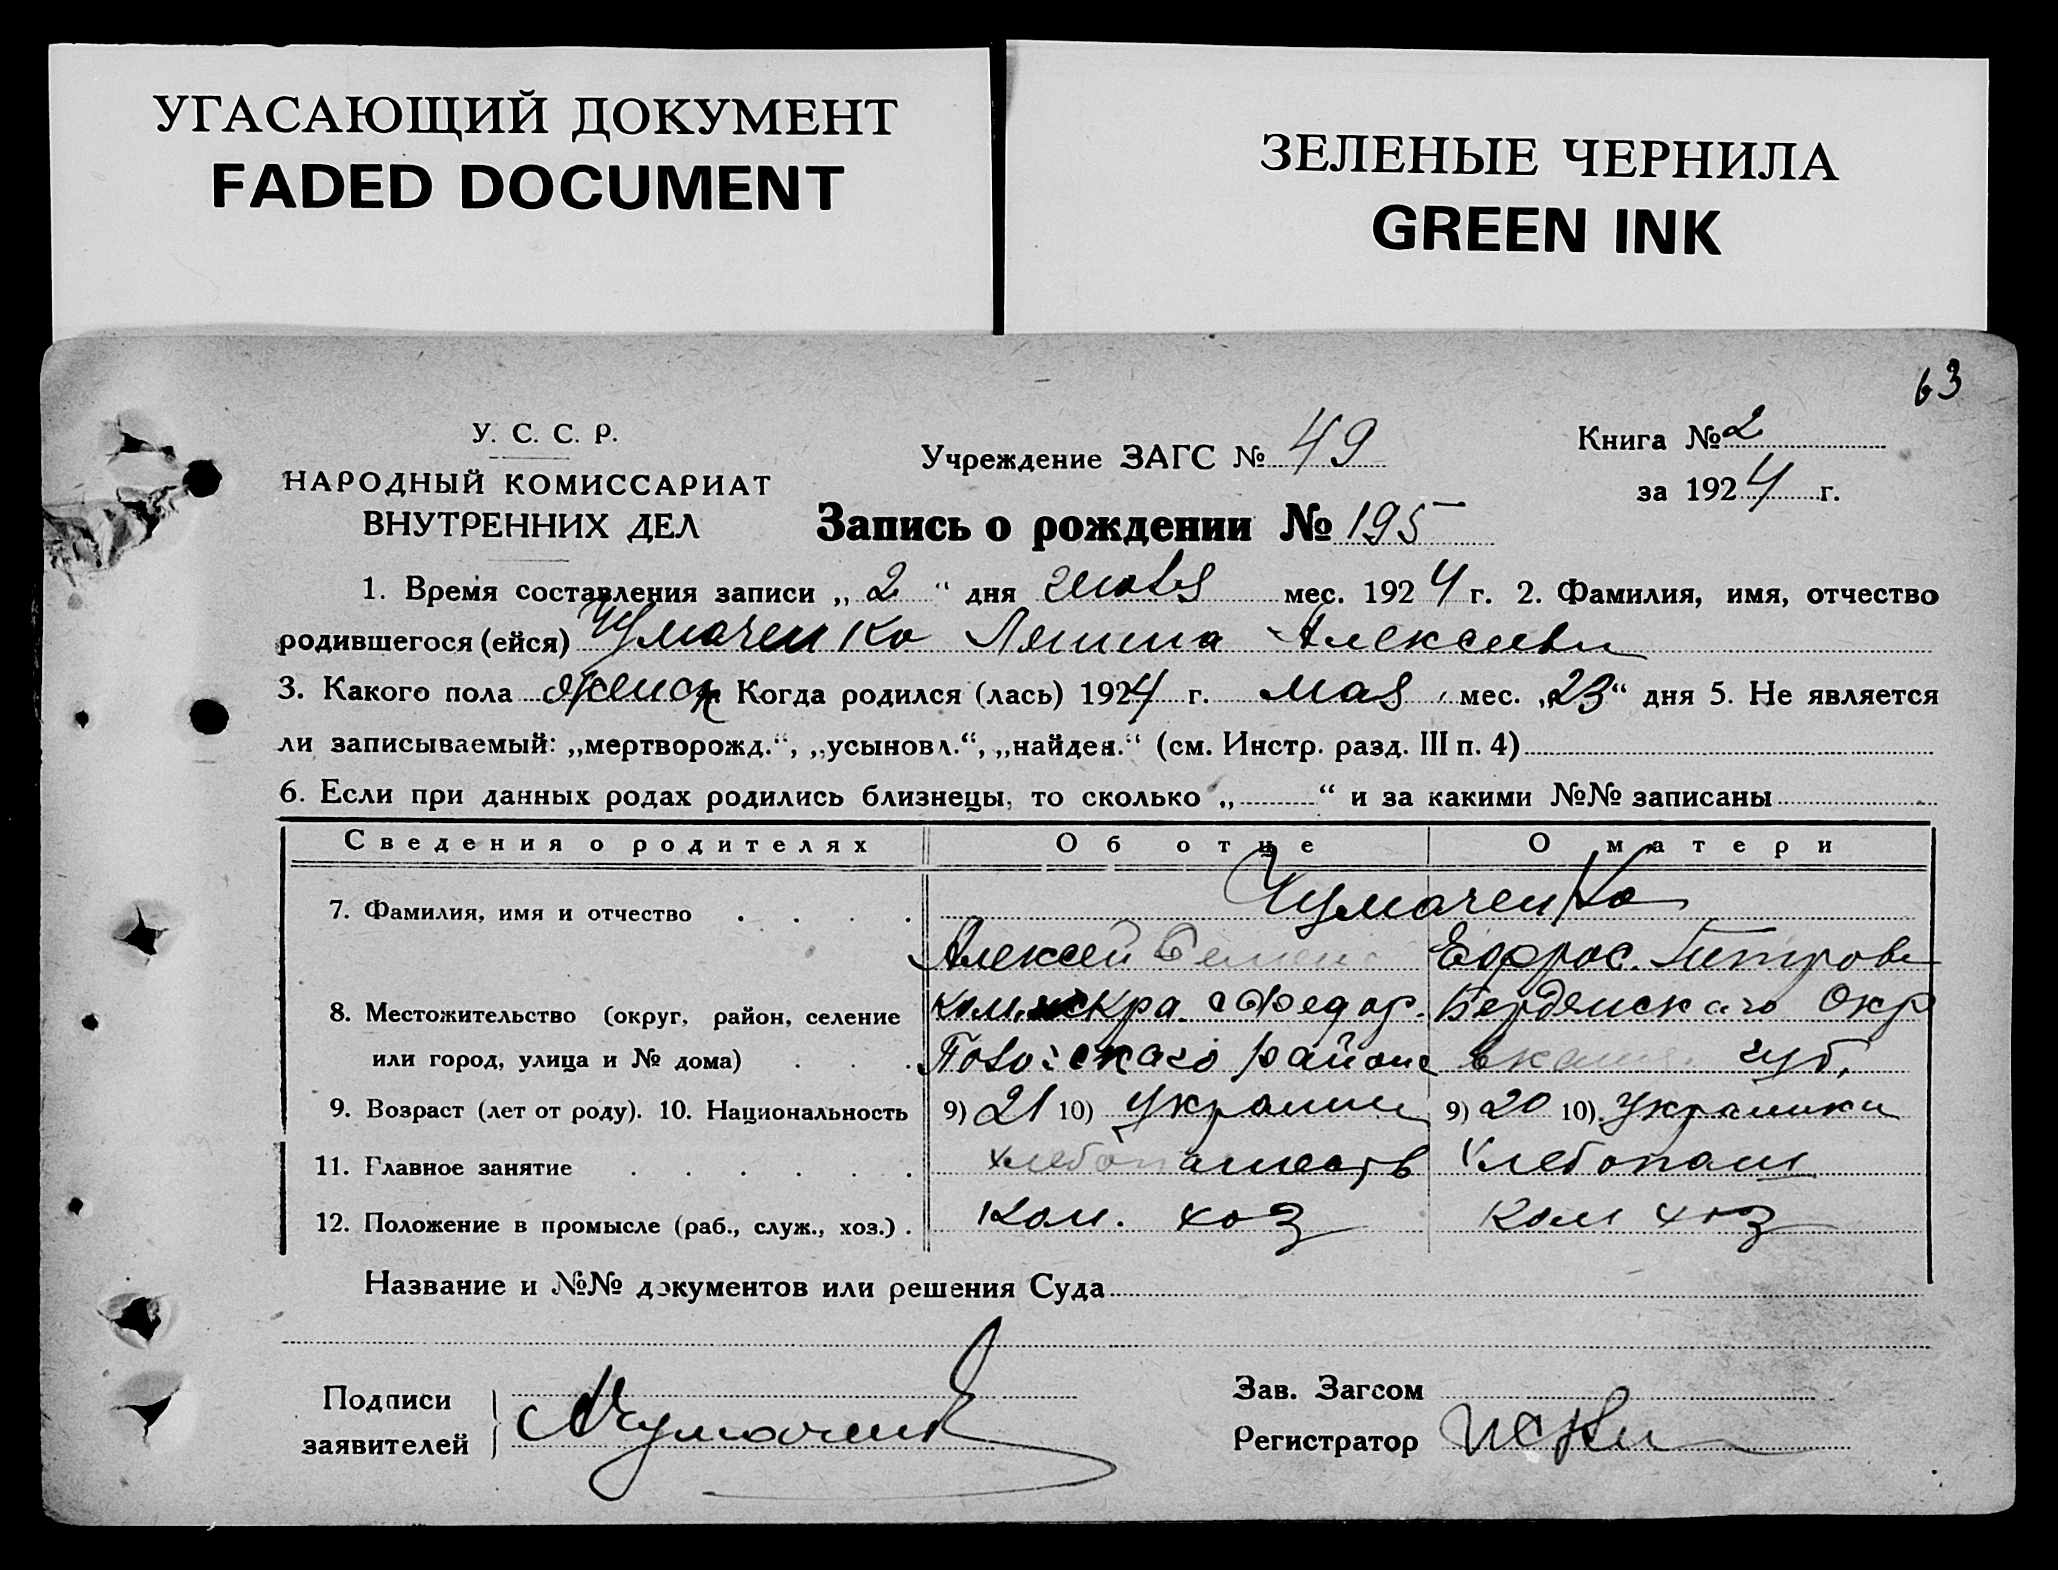 УГАСАЮЩИЙ ДОКУМЕНТ
FADED DOCUMENT
ЗЕЛЕНЫЕ ЧЕРНИЛА
GREEN INK
63
У. С. С. Р.
НАРОДНЫЙ КОМИССАРИАТ
ВНУТРЕННИХ ДЕЛ
Учреждение ЗАГС № 49
Книга № 2
за 1924 г.
Запись о рождении № 195
1. Время составления записи „2“ дня мес. 1924 г. 2. Фамилия, имя, отчество
родившегося (ейся) Чумаченко Алексеевн
3. Какого пола женск Когда родился (лась) 1924 г. мая мес. „23“ дня 5. Не является
ли записываемый: „мертворожд.“, „усыновл.“, „найден.“ (см. Инстр. разд. III п. 4)
6. Если при данных родах родились близнецы, то сколько „ “ и за какими №№ записаны
Сведения о родителях Об отце О матери
7. Фамилия, имя и отчество Чумаченко
Алексей Семен Ефрос. Петровн
8. Местожительство (округ, район, селение Федор. Бердянскаго Окр
или город, улица и № дома) района губ.
9. Возраст (лет от роду). 10. Национальность 9) 21 10) Украинец 9) 20 10) Украинка
11. Главное занятие хлебопашеств Хлебопаш
12. Положение в промысле (раб., служ., хоз.) Ком. хоз Ком хоз
Название и №№ документов или решения Суда
Подписи
заявителей
АЧумаченк
Зав. Загсом
Регистратор